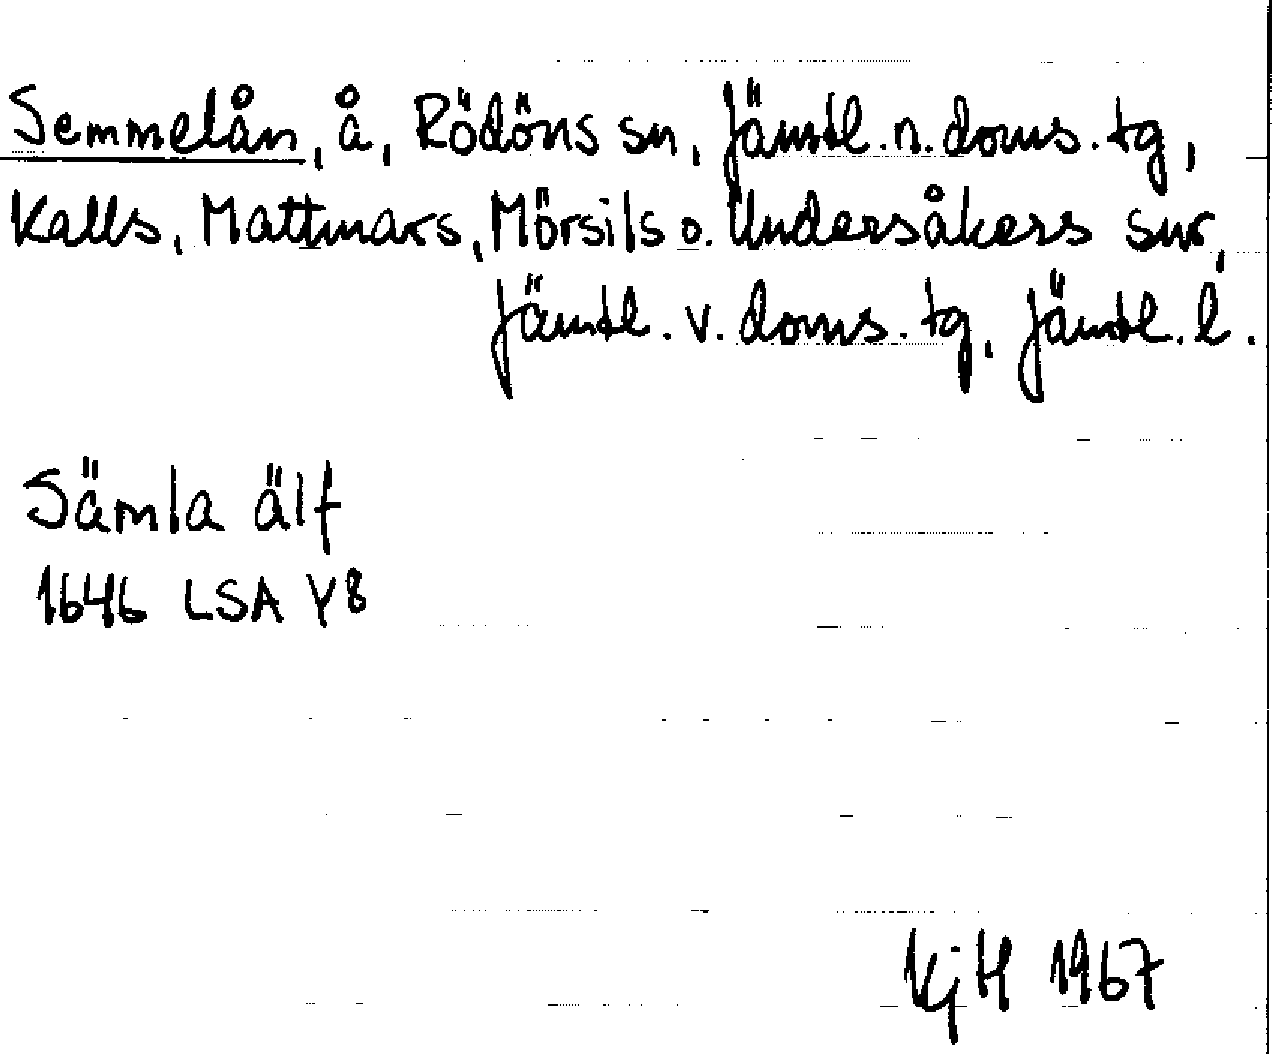 Semmelån, å, Rödöns sn, Jämtl. n. doms. tg,
Kalls, Mattmars, Mörsils o. Undersåkers snr,
Jämtl. v. doms. tg, Jämtl. l.
Sämla älf
1646 LSA Y8
KjH 1967